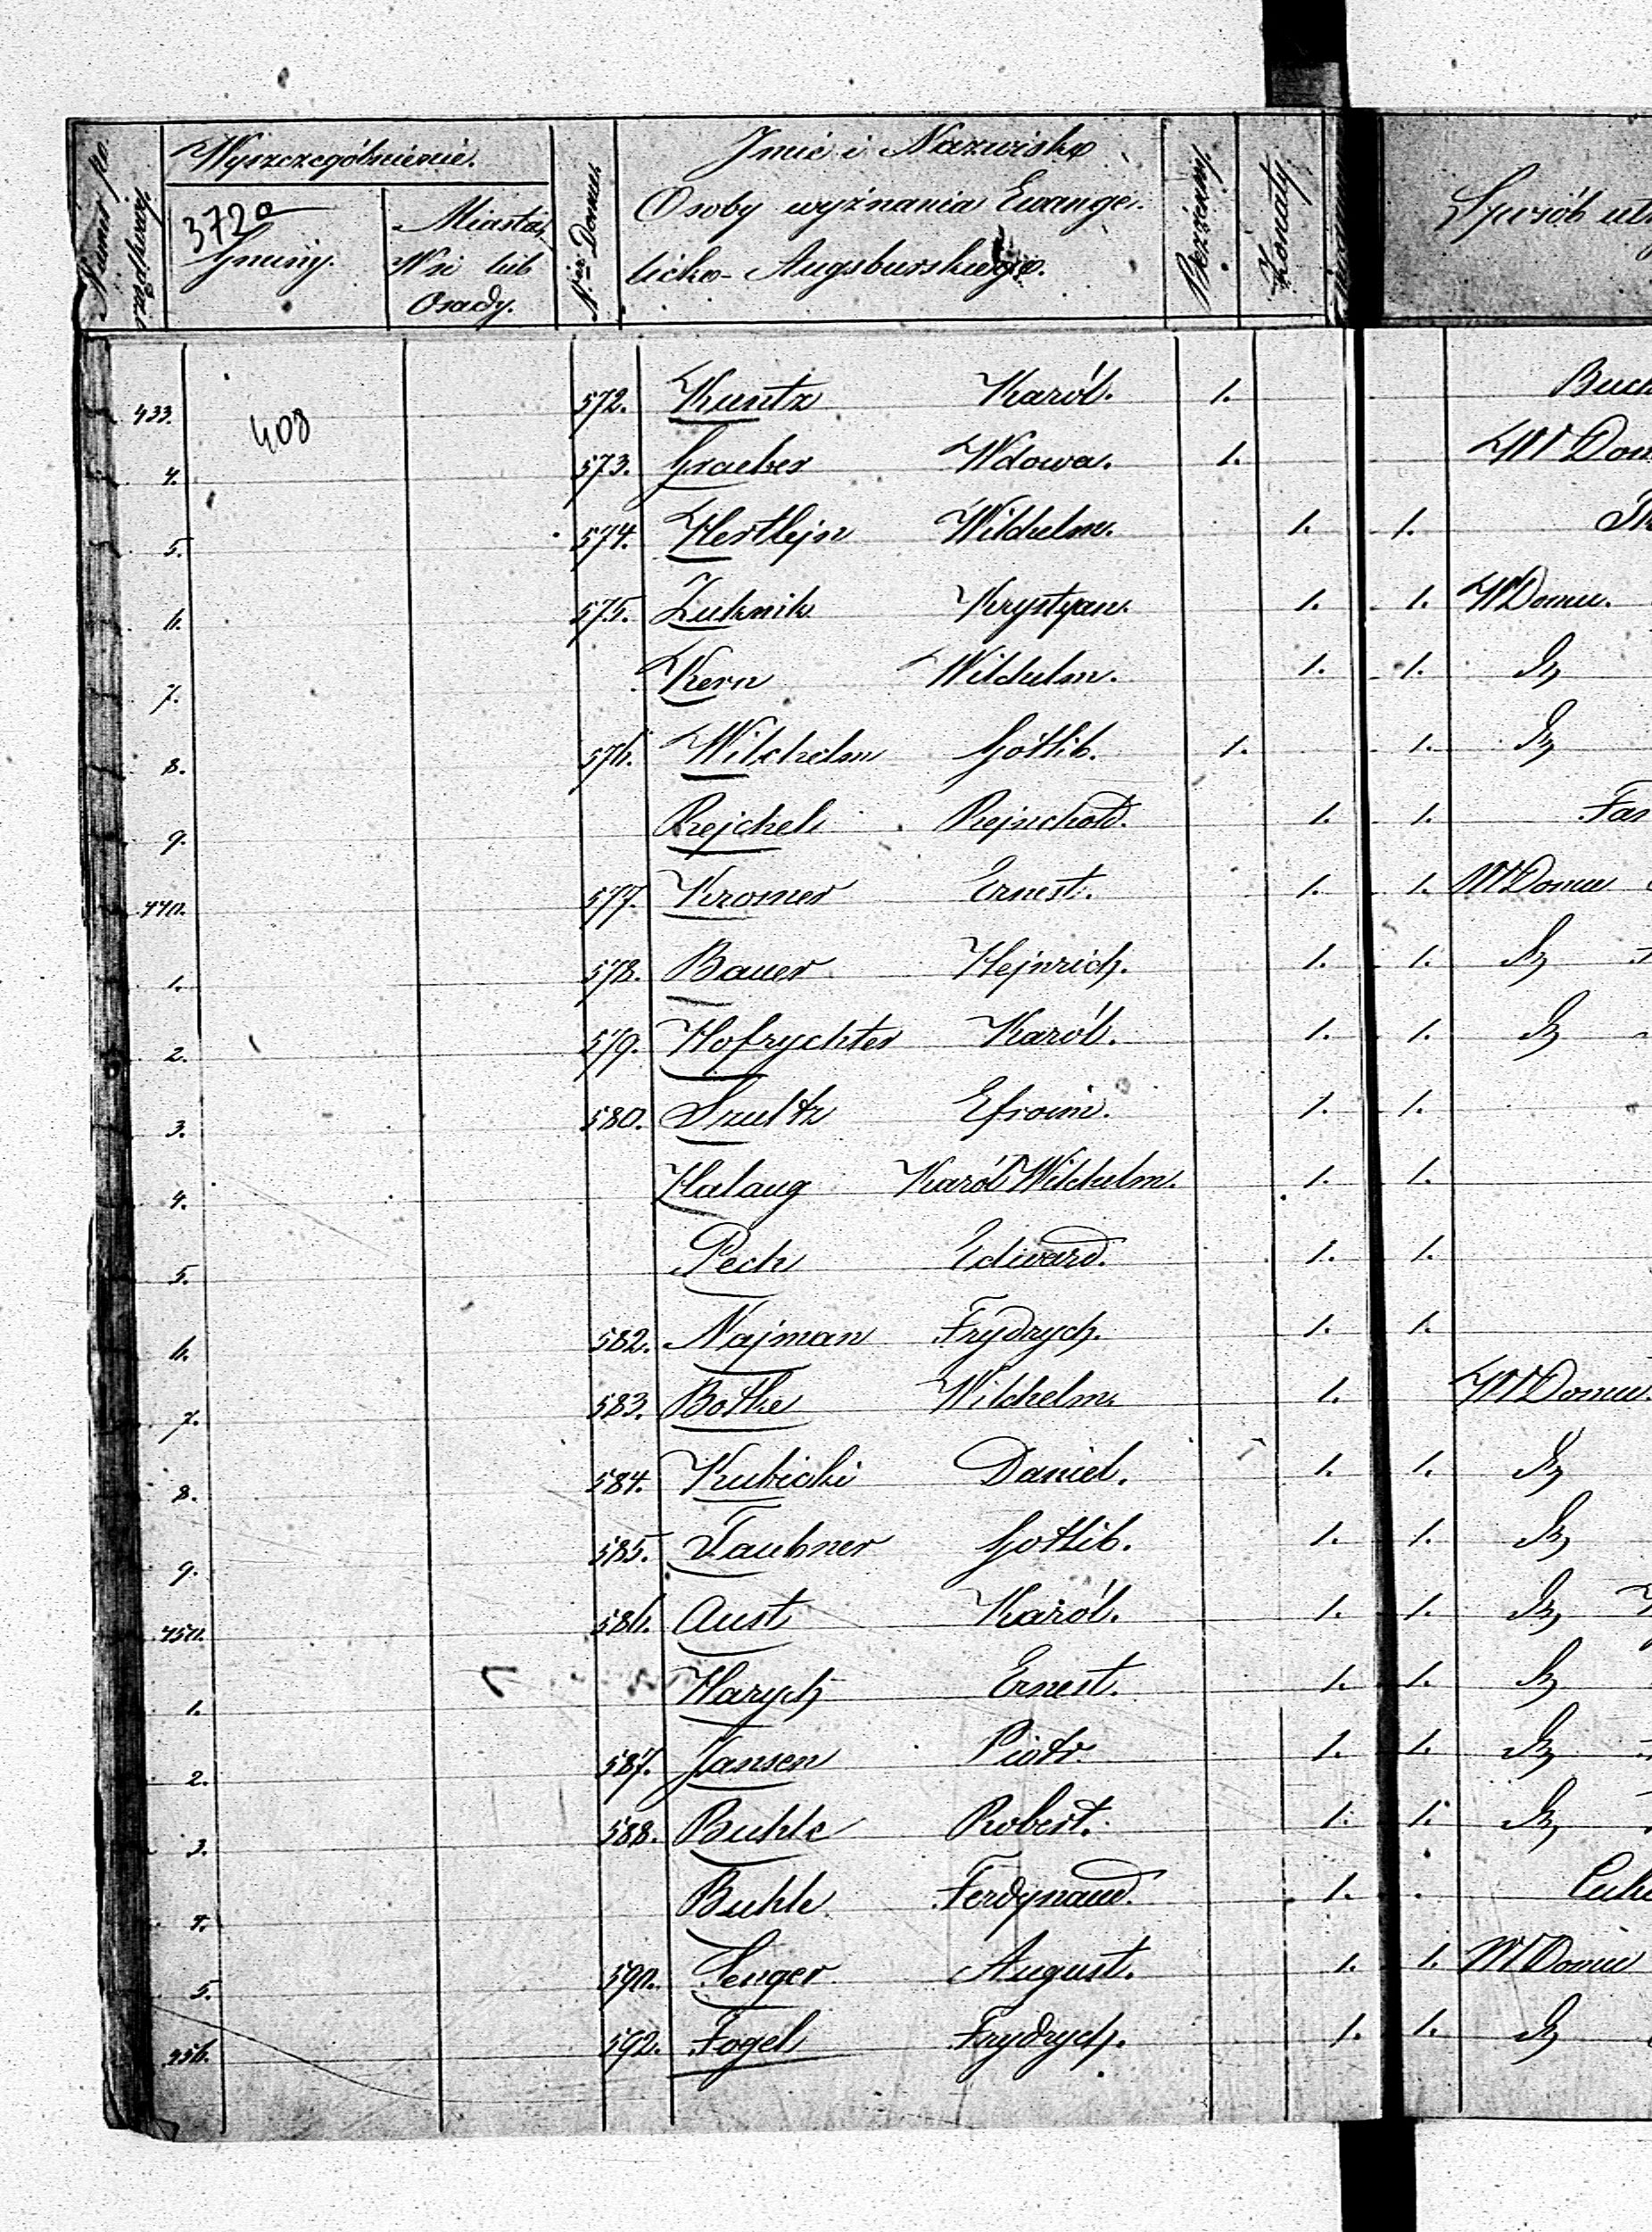 Numer po
rządkowy.
Wyszczególnienie.
372a
Gminy.
Miasta,
Wsi lub
Osady.
Nr Domu.
Jmie i Nazwisko
Osoby wyznania Ewange-
licko-Augsburskiego.
Bezżenny.
Żonaty.
Sposób
433. 408 572. Kuntz Karól. 1. Buch
4. 573. Graeber Wdowa. 1. W Dom
5. 574. Hertlejn Wilchelm. 1. 1.
6. 575. Krystyan. 1. 1. W Domu.
7. Kern Wilchelm. 1. 1. Dz
8. 576. Wilchelm Gotlib. 1. 1. Dz
9. Rejchel Rejnchold. 1. 1. Far
440. 577. Kromer Ernest. 1. 1. W Domu
1. 578. Bauer Hejnrich. 1. 1. Dz
2. 579. Hofrychter Karól. 1. 1. Dz
3. 580. Szultz Efroim. 1. 1.
4. Halaug Karól Wilchelm. 1. 1.
5. Pech Edward. 1. 1.
6. 582. Najman Frydrych. 1. 1.
7. 583. Bothe Wilchelm. 1. W Domu.
8. 584. Kubicki Daniel. 1. 1. Dz
9. 585. Taubner Gotlib. 1. 1. Dz
450. 586. Aust Karól. 1. 1. Dz
1. Harych Ernest. 1. 1. Dz
2. 587. Jansen Piotr. 1. 1. Dz
3. 588. Buhle Robert. 1. 1. Dz
4. Buhle Ferdynand. 1.
5. 590. Senger August. 1. 1. W Domu
456. 592. Fogel Frydrych. 1. 1. Dz